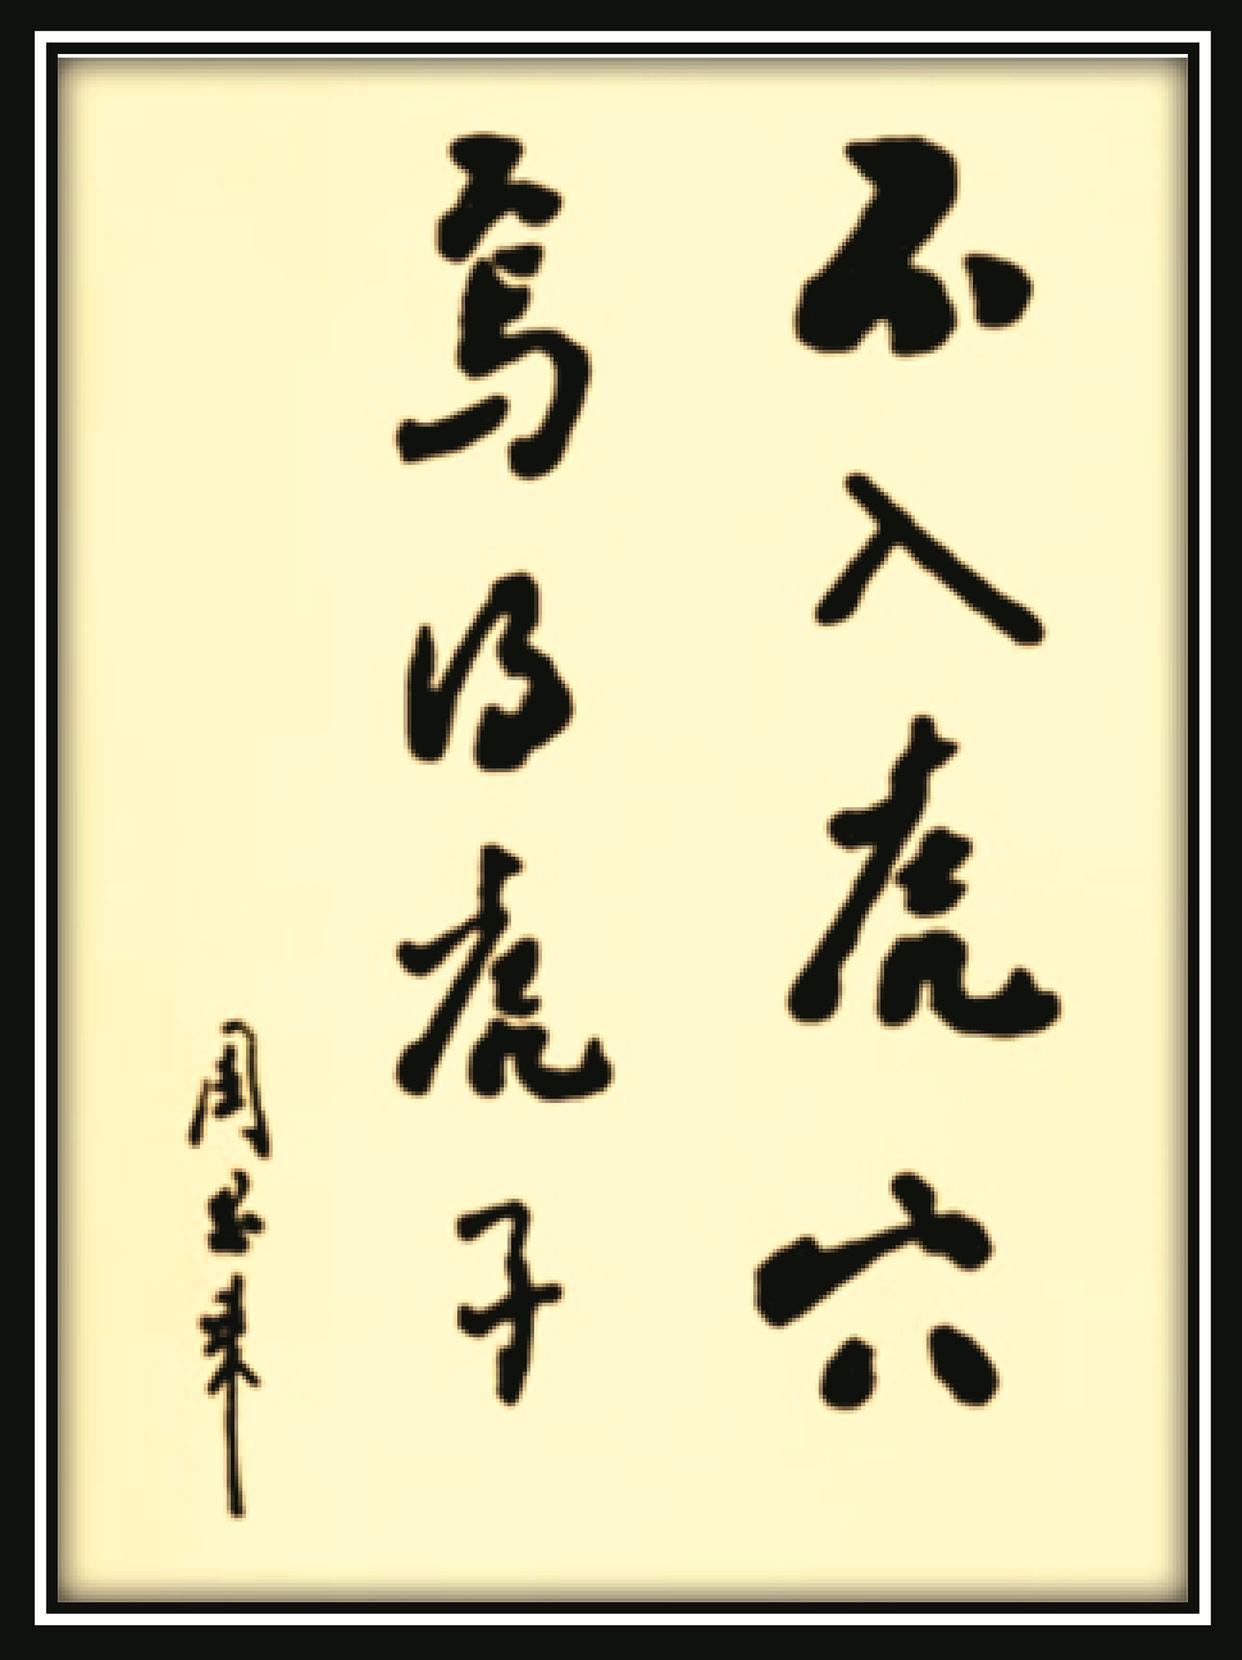 不入虎穴
焉得虎子
周恩来